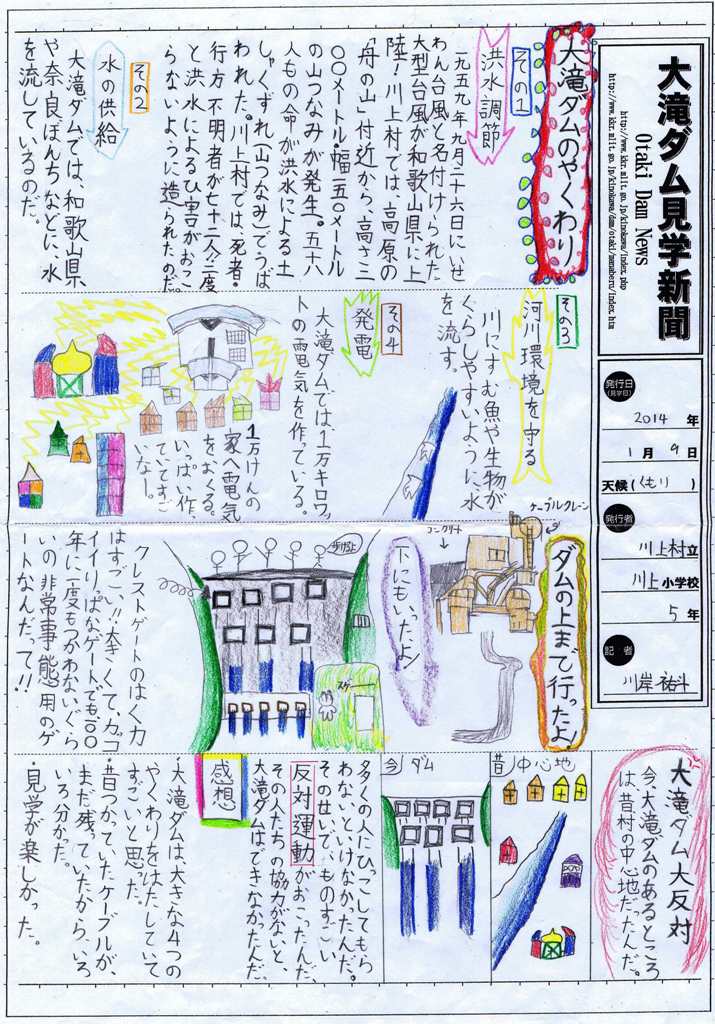 大滝ダム見学新聞
Otaki Dam News
http://www.kkr.mlit.go.jp/kinokawa/index.php
http://www.kkr.mlit.go.jp/kinokawa/dam/otaki/manaberu/index.htm
発行日
(見学日)
2014 年
1月 9日
天候(くもり)
発行者
川上村立
川上小学校
5年
記者
川岸祐斗
大滝ダムのやくわり
その1
洪水調節
一九五九年九月二十六日にいせ
わん台風と名付けられた
大型台風が和歌山県に上
陸!川上村では、高原の
「舟の山」付近から、高さ三
〇〇メートル・幅一五〇メートル
の山つなみが発生。五十八
人もの命が洪水による土
しゃくずれ(山つなみ)でうば
われた。川上村では、死者・
行方不明者が七十二人!!二度
と洪水によるひ害がおこ
らないように造られたのだ
その2
水の供給
大滝ダムでは、和歌山県
や奈良ぼんちなどに、水
を流しているのだ。
その3
河川環境を守る
川にすむ魚や生物が
くらしやすいように水
を流す。
その4
発電
大滝ダムでは、1万キロワッ
トの電気を作っている。
1万けんの
家へ電気
をおくる。
いっぱい作
ていてすご
いなー。
ダムの上まで行ったよ!
ケーブルクレーン
コンクリート
下にもいったよ!
クレストゲートのはく力
はすごい!!大きくて、カッコ
イイ!りっぱなゲートでも一〇〇
年に一度もつかわないぐら
いの非常事態用のゲ
ートなんだって!!
大滝ダム大反対
今、大滝ダムのあるところ
は、昔村の中心地だったんだ。
昔 中心地
今 ダム
多くの人にひっこしてもら
わないといけなかったんだ。
そのせいで、ものすごい
反対運動がおこったんだ、
その人たちの協力がないと、
大滝ダムは、できなかったんだ。
感想
・大滝ダムは、大きな4つの
やくわりをはたしていて
すごいと思った。
・昔つかっていたケーブルが、
まだ残っていたから、いろ
いろ分かった。
・見学が楽しかった。